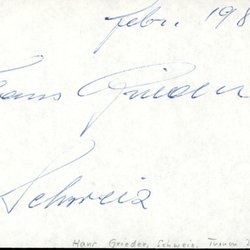 febr. 198
Hans Grieder
Schweiz
Hans Grieder, Schweiz.